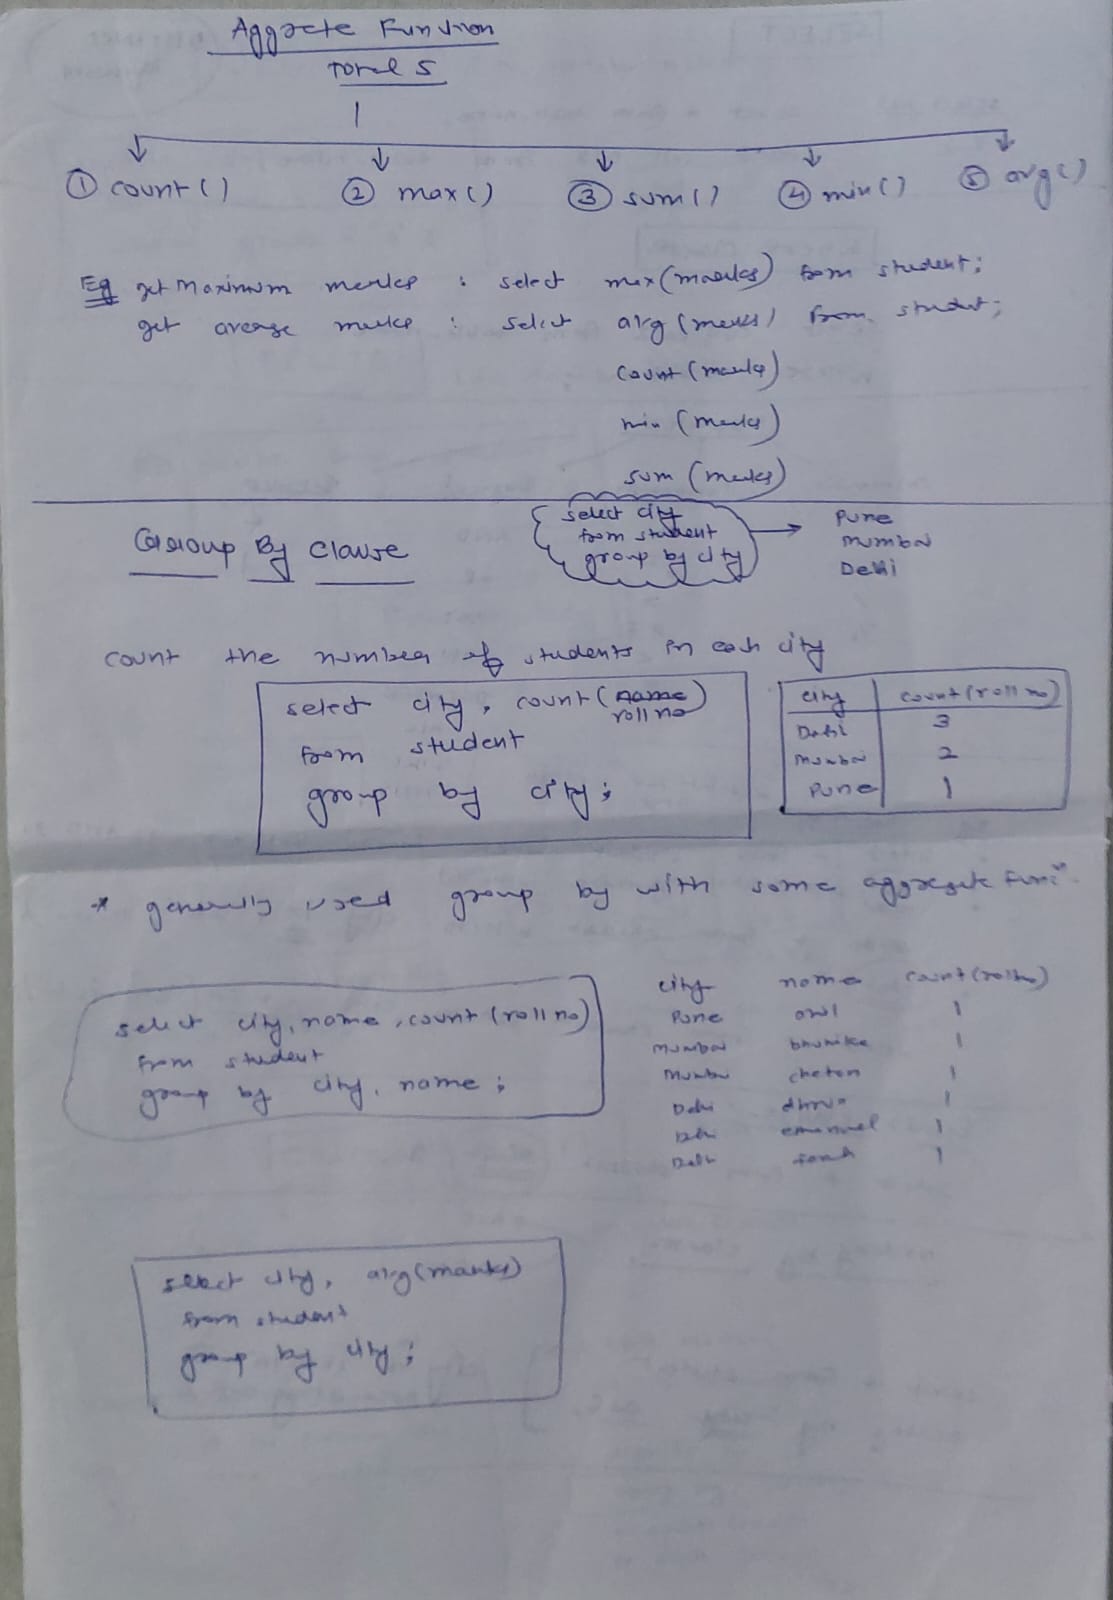 Aggrete Function
Total 5
① count ( )
② max ( )
③ sum ( )
④ min ( )
⑤ avg ( )
Eg get Maximum marks : select max (marks) from student ;
get average marks : select avg (marks) from student ;
count (marks)
min (marks)
sum (marks)
Group By clause
select city
from student
group by city
Pune
Mumbai
Delhi
count the number of students in each city
select city, count (name)
roll no
from student
group by city ;
city count (roll no)
Delhi 3
Mumbai 2
Pune 1
* generally used group by with some aggregate funcⁿ.
select city, name, count (roll no)
from student
group by city, name ;
city name count (rollno)
Pune anil 1
Mumbai bhumika 1
Mumbai chetan 1
Delhi dhruv 1
Delhi emanuel 1
Delhi farah 1
select city, avg (marks)
from student
group by city ;